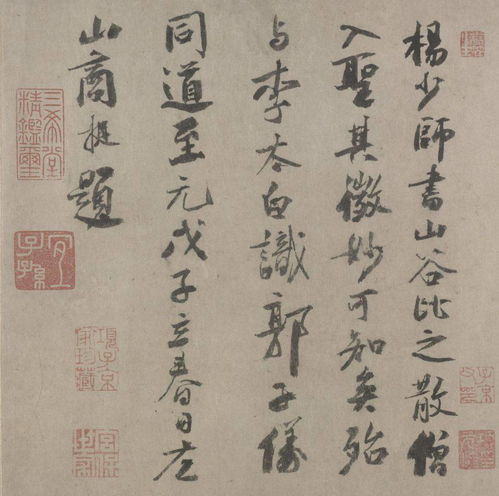 楊少師書山谷比之散僧
入聖其微妙可知矣殆
与李太白識郭子儀
同道至元戊子立春日左
山商挺題
三希堂精鑑璽
宜子孫
項子京家珍藏
宮保世家